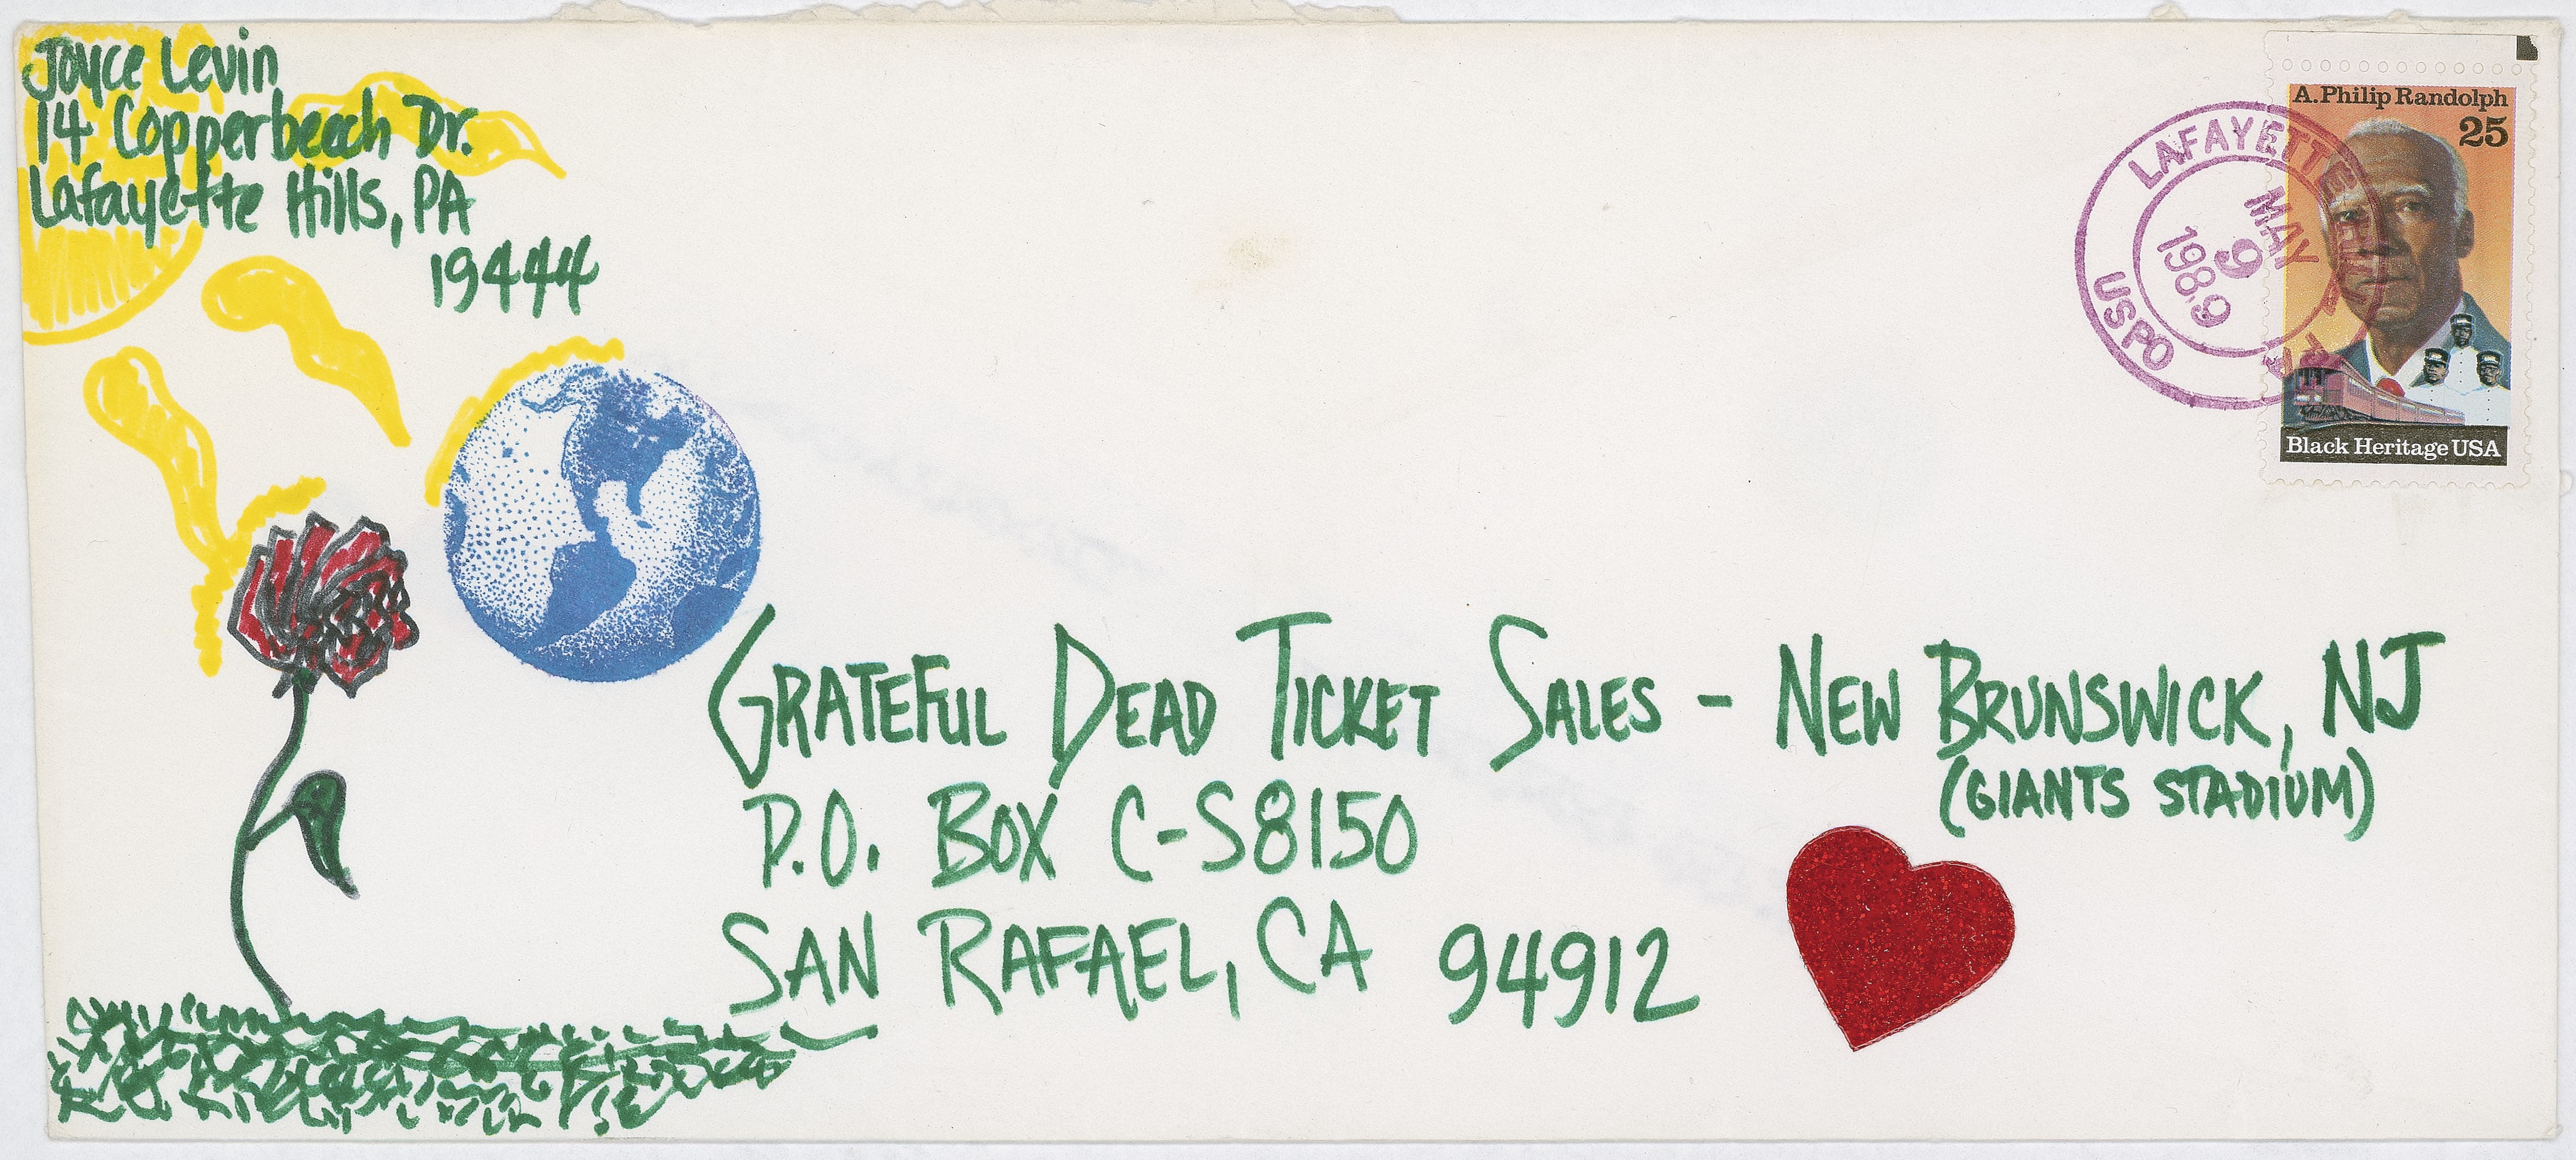 Joyce Levin
14 Copperbeech Dr.
Lafayette Hills, PA
19444
A. Philip Randolph
25
Black Heritage USA
LAFAYETTE HILL PA
MAY
9
1989
USPO
GRATEFUL DEAD TICKET SALES - NEW BRUNSWICK, NJ
(GIANTS STADIUM)
P.O. BOX C-S8150
SAN RAFAEL, CA 94912